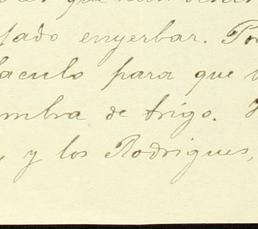 que
tado enyerbar. Por
táculo para que
mbra de trigo.
y los Rodrigues,